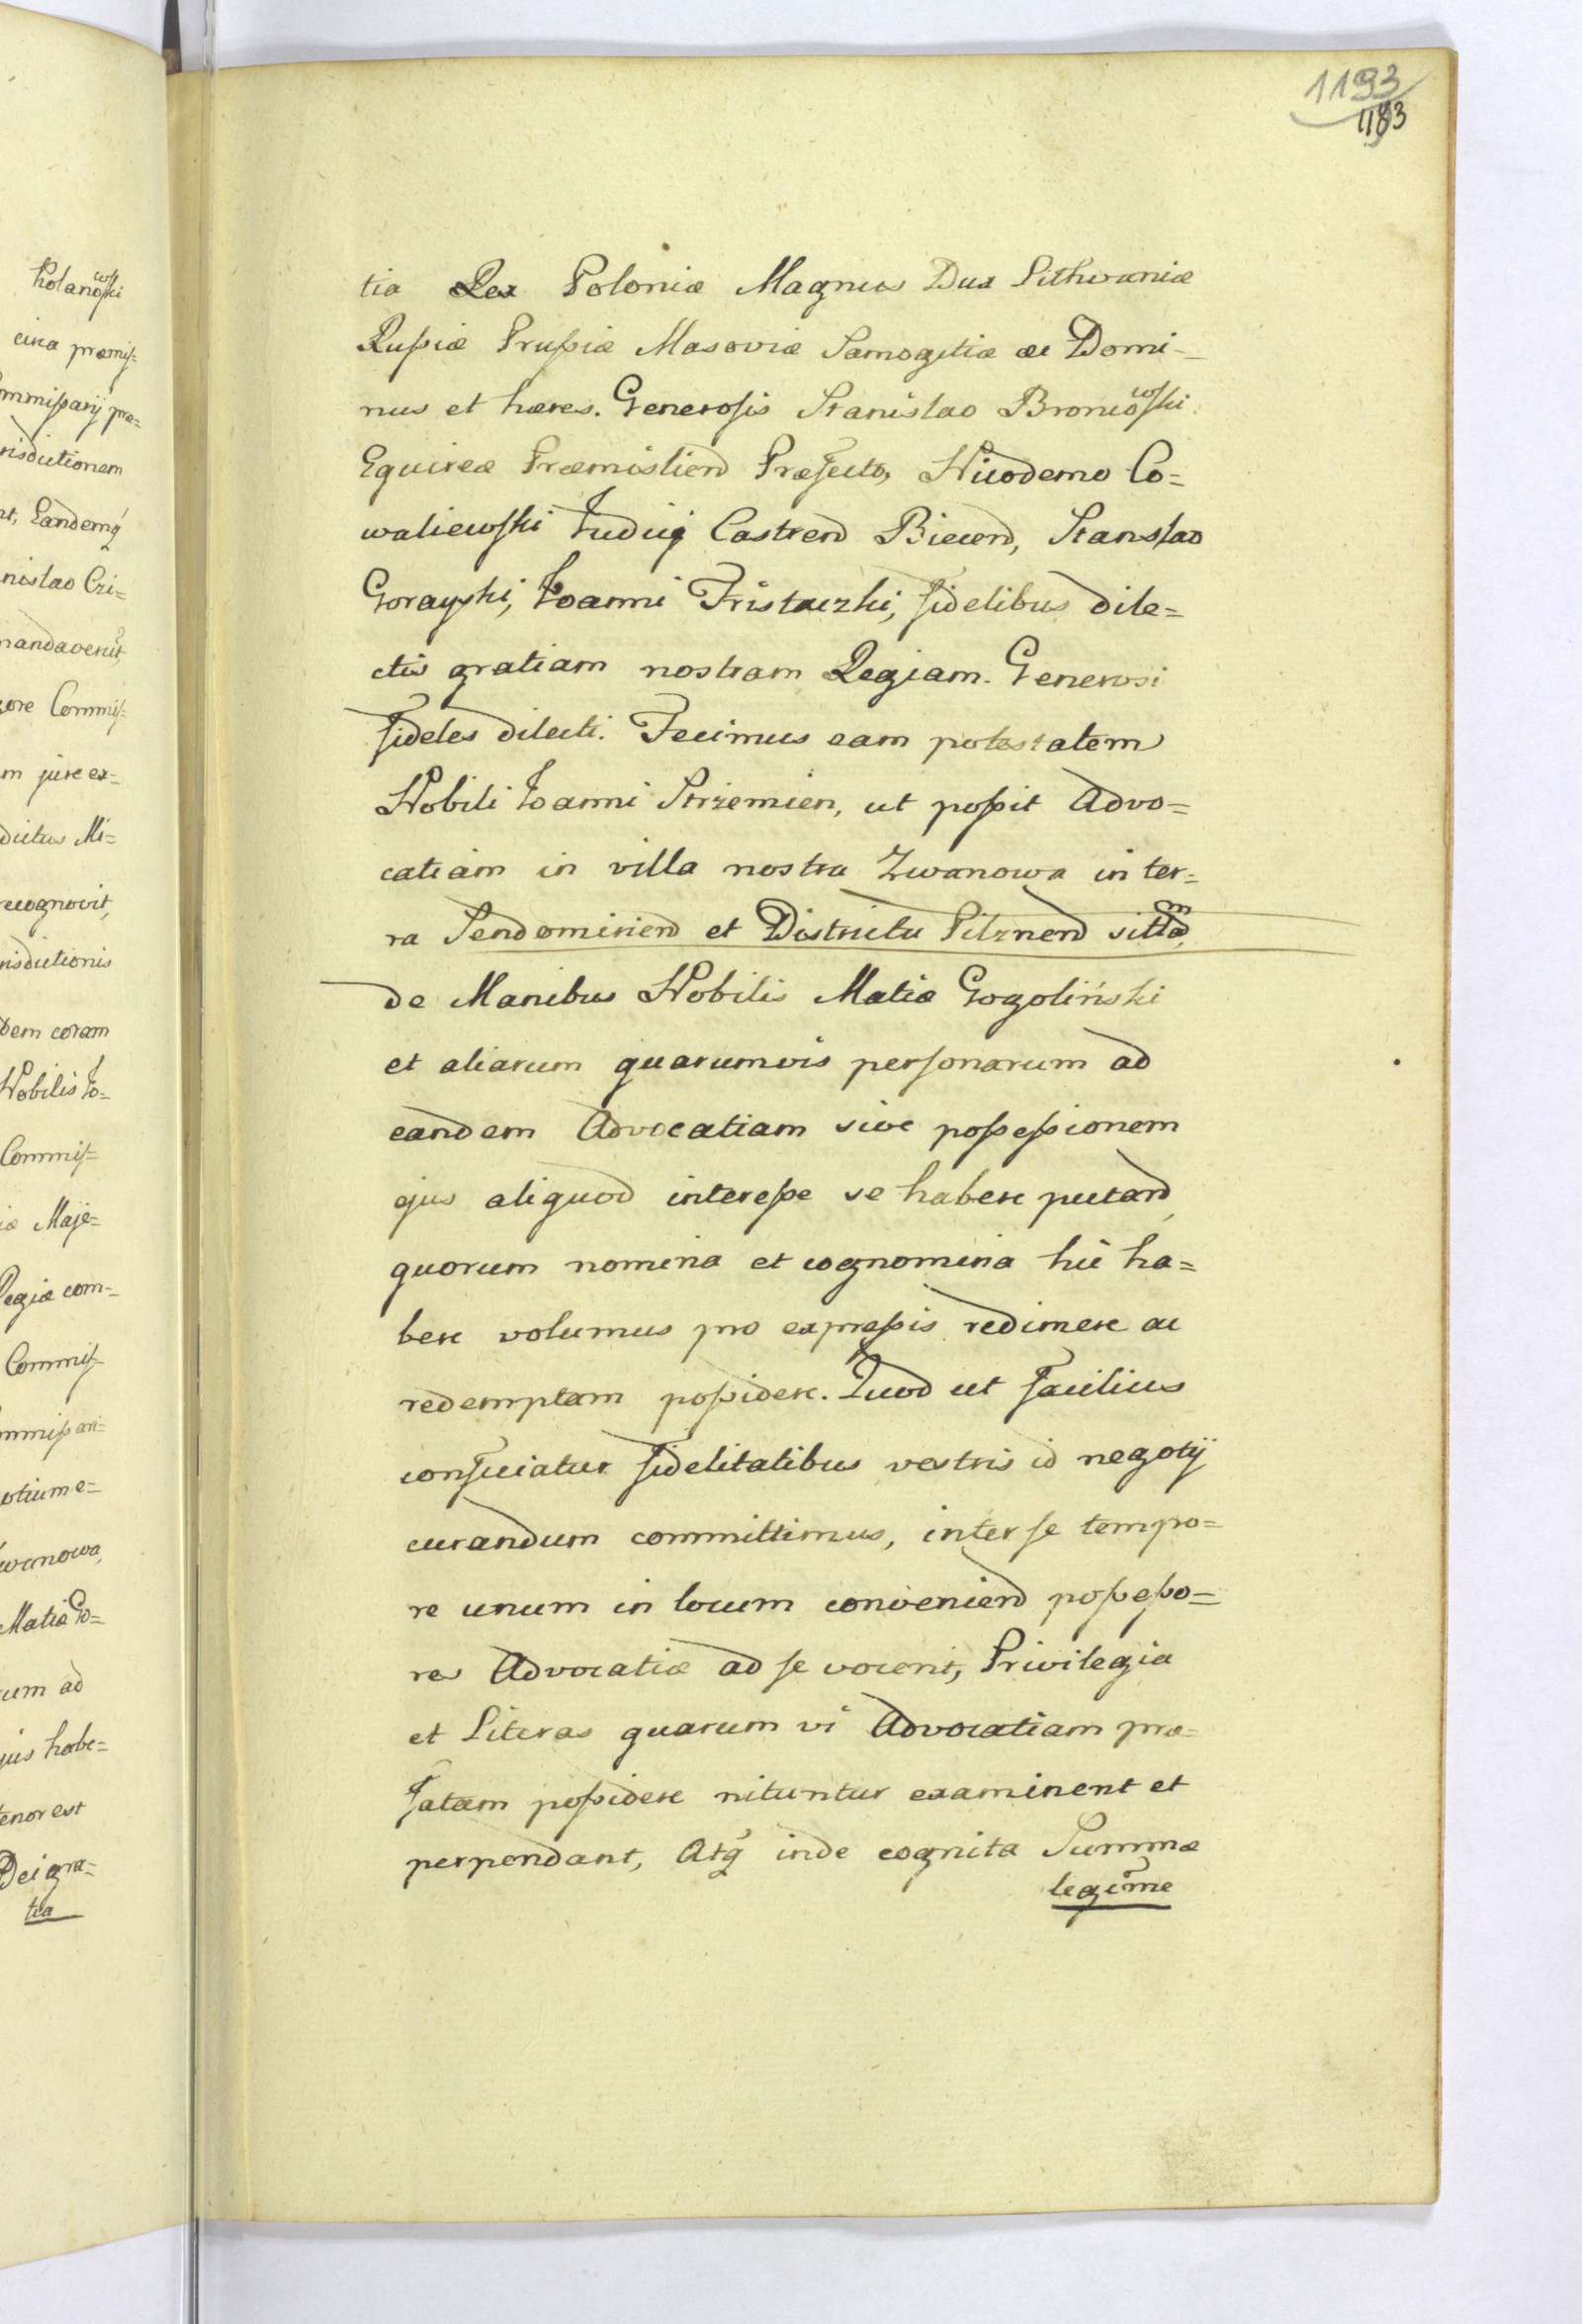 1193
1183
Kolanowski
circa præmiſ=
ommiſsarij præ=
risdictionem
nt, Eandemq́
nislao Cri=
mandaverit
gore Commiſ=
m jure ex=
dictus Mi=
recognovit,
risdictionis
dem coram
Nobilis Jo=
Commiſ=
iæ Maje=
Regiæ com=
Commiſ=
mmiſsari=
otium e=
wanowa,
Matiæ Go=
rum ad
jus habe=
tenor est
Dei gra=
tia
tia Rex Poloniæ Magnus Dux Lithvaniæ
Ruſsiæ Pruſsiæ Masoviæ Samogitiæ ac Domi=
nus et hæres. Generoſis Stanislao Broniowſki
Equireæ Præmislien Præfecto, Nicodemo Co=
waliewſki Judicj Castren Biecen, Stanslao
Gorayſki, Joanni Fristaczki, fidelibus dile=
ctis gratiam nostram Regiam. Generosi
fideles dilecti. Fecimus eam potestatem
Nobili Joanni Strzemien, ut poſsit Advo=
catiam in villa nostra Zwanowa in ter=
ra Sendomirien et Districtu Pilznen sittam
de Manibus Nobilis Matiæ Gogoliński
et aliarum quarumvis perſonarum ad
eandem Advocatiam sive poſseſsionem
ejus aliquod intereſse se habere putand,
quorum nomina et cognomina hic ha=
bere volumus pro expreſsis redimere ac
redemptam poſsidere. Quod ut facilius
conficiatur fidelitatibus vestris id negotij
curandum committimus, inter ſe tempo=
re unum in locum convenien poſseſso=
res Advocatiæ ad ſe vocent, Privilegia
et Literas quarum vi Advocatiam præ=
fatam poſsidere nituntur examinent et
perpendant, Atq́ inde cognita Summæ
legit̃me